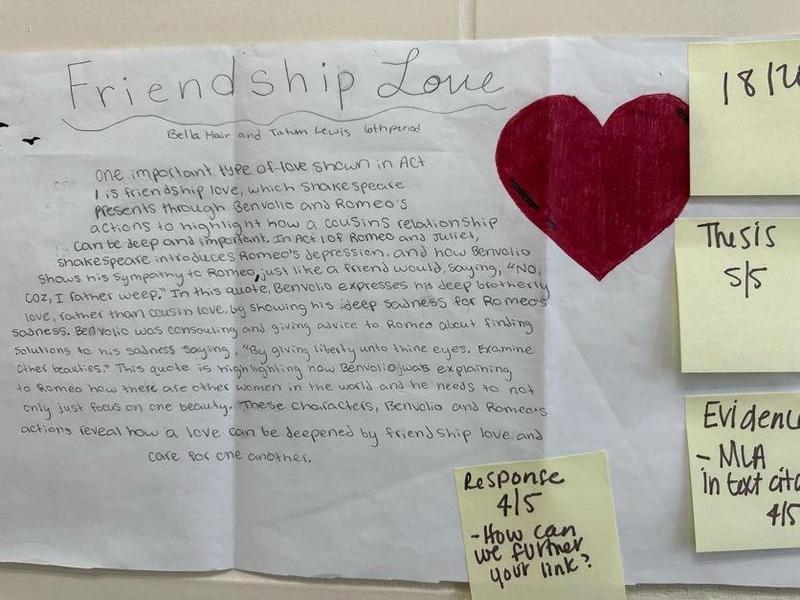 Friendship Love
Bella Hair and Tatum Lewis 6th period
One important type of love shown in Act
1 is friendship love, which Shakespeare
presents through Benvolio and Romeo's
actions to highlight how a cousins relationship
can be deep and important. In Act 1 of Romeo and Juliet,
Shakespeare introduces Romeo's depression, and how Benvolio
shows his sympathy to Romeo, just like a friend would, saying, "No,
coz, I rather weep." In this quote, Benvolio expresses his deep brotherly
love, rather than cousin love, by showing his deep sadness for Romeo's
sadness. Benvolio was consouling and giving advice to Romeo about finding
solutions to his sadness saying, "By giving liberty unto thine eyes. Examine
other beauties." This quote is highlighting how Benvolio was explaining
to Romeo how there are other women in the world and he needs to not
only just focus on one beauty. These characters, Benvolio and Romeo's
actions reveal how a love can be deepened by friendship love and
care for one another.
18/20
Thesis
5/5
Evidenc
- MLA
in text cita
4/5
Response
4/5
- How can
we further
your link?